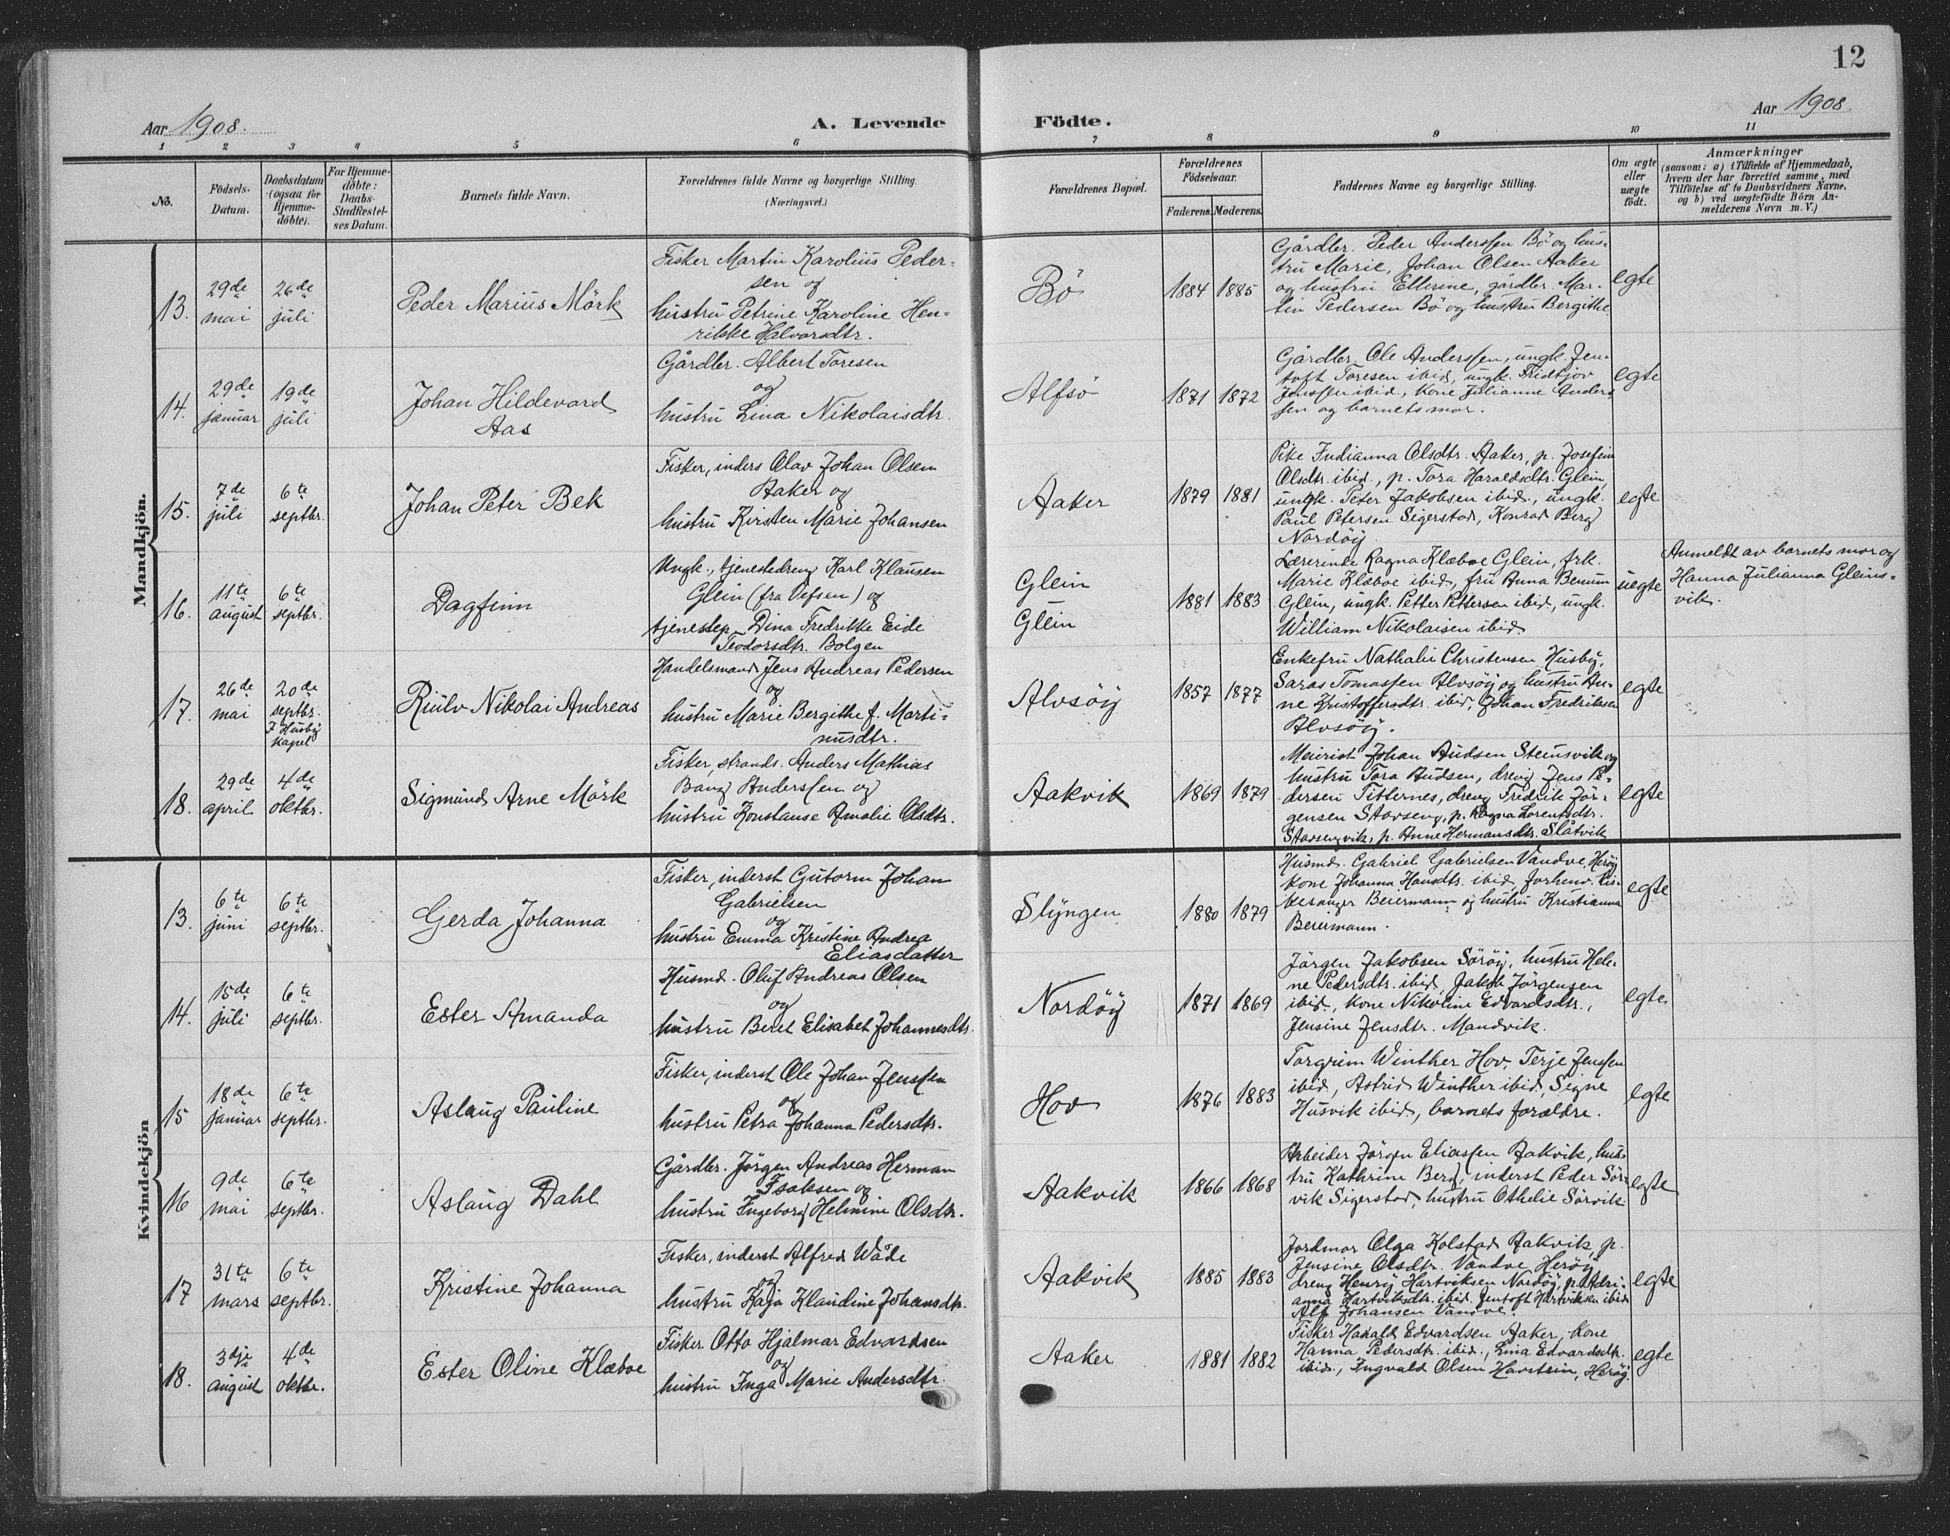 12
Aar 1908.
A. Levende
Födte.
Aar 1908.
1 2 3 4 5 6 7 8 9 10 11
No.
Födsels-
Datum.
Daabsdatum
(ogsaa for
Hjemme-
döbte).
For Hjemme-
döbte:
Daabs-
Stadfæstel-
ses Datum.
Barnets fulde Navn.
Forældrenes fulde Navne og borgerlige Stilling.
(Næringsvei.)
Forældrenes Bopæl.
Forældrenes
Födselsaar.
Faderens. Moderens.
Faddernes Navne og borgerlige Stilling.
Om ægte
eller
uægte
födt.
Anmærkninger
(saasom: a) i Tilfælde af Hjemmedaab,
hvem der har forrettet samme, med
Tilföielse af to Daabsvidners Navne.
og b) ved uægtefödte Börn An-
melderens Navn m. V.)
Mandkjön.
13.
29de
mai
26de
juli
Peder Marius Mörk
Fisker Martin Karolius Peder-
sen og
hustru Petrine Karoline Hen-
rikke Halvorsdtr.
Bö
1884 1885
Gårdbr. Peder Anderssen Bö og hus-
tru Marie, Johan Olsen Aaker
og hustru Ellerine, gårdbr. Mar-
tin Pedersen Bö og hustru Bergithe
egte
14.
29de
januar
19de
juli
Johan Hildevard
Aas
Gårdbr. Albert Toresen
og
hustru Lina Nikolaisdtr.
Alfsö
1871 1872
Gårdbr. Ole Anderssen, ungk. Jen-
toft Toresen ibid, ungk. Fridtjov
Jenssen ibid, Kone Julianne Anders
sen og barnets mor.
egte
15.
7de
juli
6te
septbr.
Johan Peter Bek
Fisker, inders Olav Johan Olsen
Aaker og
hustru Kirsten Marie Johansen
Aaker
1879 1881
Pike Indianna Olsdtr. Aaker, p. Josefine
Olsdtr. ibid, p. Tora Haraldsdtr. Glein,
ungk. Peter Jakobsen ibid., ungk.
Paul Petersen Sigerstad, Konrad Berg
Nordöy
egte
16.
11te
august
6te
septbr.
Dagfinn
Ungk., tjenestedreng Karl Klausen
Glein (fra Vefsen) og
tjenestep. Dina Fredrikke Eide
Teodorsdtr. Bolgen
Glein
Glein
1881 1883
Lærerinde Ragna Klæboe Glein, frk.
Marie Klæboe ibid, fru Anna Benum
Glein, ungk. Petter Pettersen ibid, ungk.
William Nikolaisen ibid
uegte
Anmeldt av barnets mor og
Hanna Julianna Gleins-
vik.
17.
26de
mai
20de
septbr.
I Husby
kapel
Riulv Nikolai Andreas
Handelsmand Jens Andreas Pedersen
og
hustru Marie Bergithe f. Marti-
nusdtr.
Alvsöy
1857 1877
Enkefru Nathalie Christensen Husby,
Saras Tomassen Alvsöy og hustru An-
ne Kristoffersdtr. ibid, Johan Fredriksen
Alvsöy.
egte
18.
29de
april
4de
oktbr.
Sigmund Arne Mörk
Fisker, strands. Anders Mathias
Bang Anderssen og
hustru Konstanse Amalie Olsdtr.
Aakvik
1869 1879
Meierist Johan Audsen Steinsvik og
hustru Tora Audsen, dreng Jens Pe-
dersen Titternes, dreng Fredrik Jör-
gensen Stavseng, p. Ragna Lorentsdtr.
Stavsengvik, p. Anne Hermansdtr. Slåtvik
egte
Kvindekjön
13.
6te
juni
6te
septbr.
Gerda Johanna
Fisker, inderst Gutorm Johan
Gabrielsen
og
hustru Emma Kristine Andrea
Eliasdatter
Slyngen
1880 1879
Husmd. Gabriel Gabrielsen Vandve, Heröy
Kone Johanna Hansdtr. ibid, forhenv. kir-
kesanger Beiermann og hustru Kristianna
Beiermann.
egte
14.
15de
juli
6te
septbr.
Ester Amanda
Husmd. Oluf Andreas Olsen
og
hustru Beret Elisabet Johannesdtr.
Nordöy
1871 1869
Jörgen Jakobsen Söröy, hustru Hele-
ne Pedersdtr. ibid, Jakob Jörgensen
ibid, Kone Nikoline Edvardsdtr.,
Jensine Jensdtr. Mandvik.
egte
15
18de
januar
6te
septbr.
Aslaug Pauline
Fisker, inderst Ole Johan Jenssen
og
hustru Petra Johanna Pedersdtr.
Hov
1876 1883
Torgrim Winther Hov, Terje Jenssen
ibid, Astrid Winther ibid, Signe
Husvik ibid, barnets forældre.
egte
16
9de
mai
6te
septbr.
Aslaug Dahl
Gårdbr. Jörgen Andreas Herman
Isaksen og
hustru Ingeborg Helmine Olsdtr.
Aakvik
1866 1868
Arbeider Jörgen Eliassen Aakvik, hus-
tru Kathrine Berg, inderst Peder Sör-
vik Sigerstad, hustru Othelie Sörvik
egte
17
31te
mars
6te
septbr.
Kristine Johanna
Fisker, inderst Alfred Wåde
og
hustru Kaja Klaudine Johansdtr.
Aakvik
1885 1883
Jordmor Olga Kolstad Aakvik, p.
Jensine Olsdtr. Vandve Heröy,
dreng Henry Hartviksen Nordöy, p. Adri-
anna Hartviksdtr. ibid. Jentoft Hartviksen ibid
Alf Johansen Vandve.
egte
18.
3dje
august
4de
oktbr.
Ester Oline Klæboe
Fisker Otto Hjalmar Edvardsen
og
hustru Inga Marie Andersdtr.
Aaker
1881 1882
Fisker Harald Edvardsen Aaker, Kone
Hanna Pedersdtr. ibid., Lina Edvardsdtr.
ibid., Ingvald Olsen Havstein, Heröy.
egte